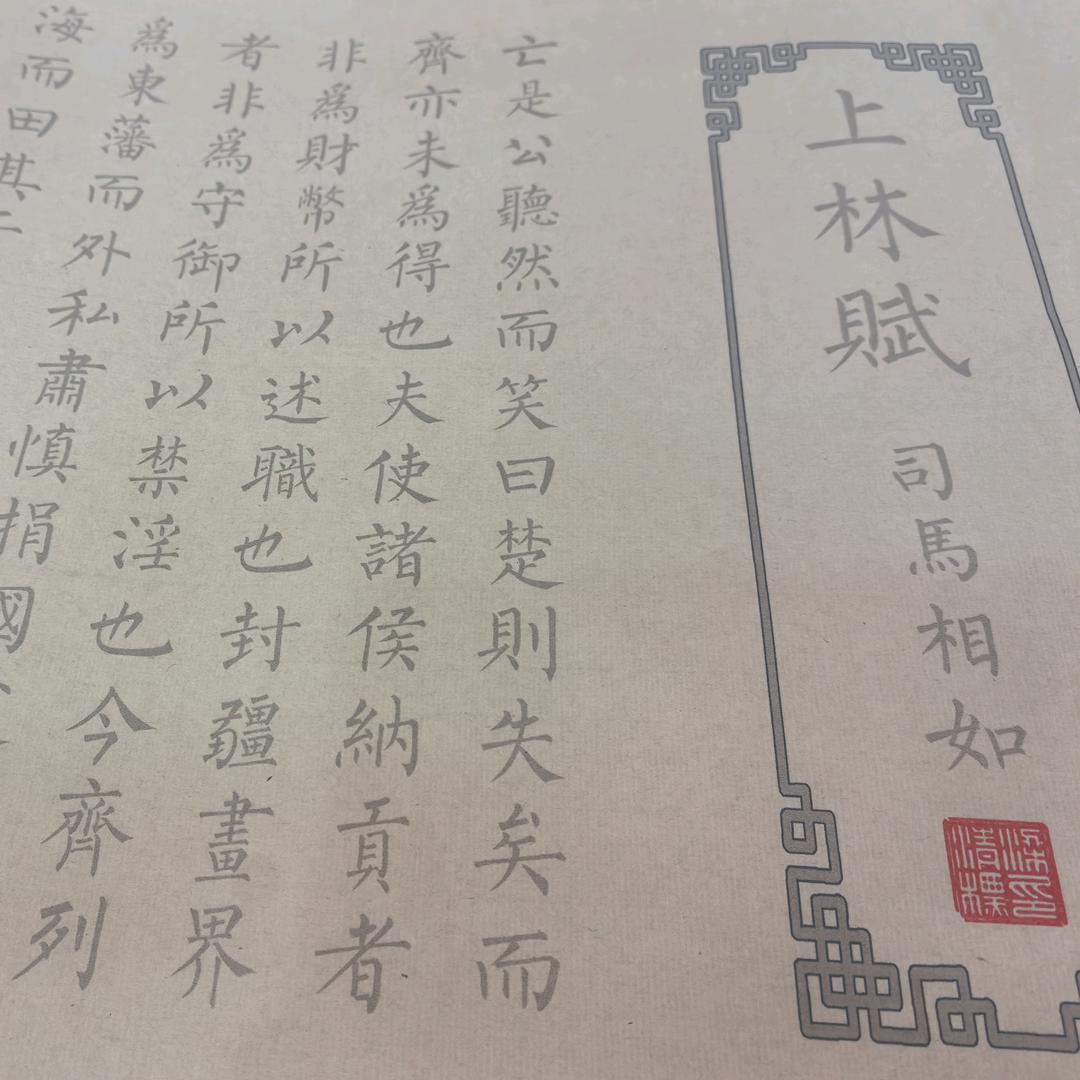 上林賦
司馬相如
亡是公聽然而笑曰楚則失矣而
齊亦未為得也夫使諸侯納貢者
非為財幣所以述職也封疆畫界
者非為守御所以禁淫也今齊列
為東藩而外私肅慎捐國
海而田其